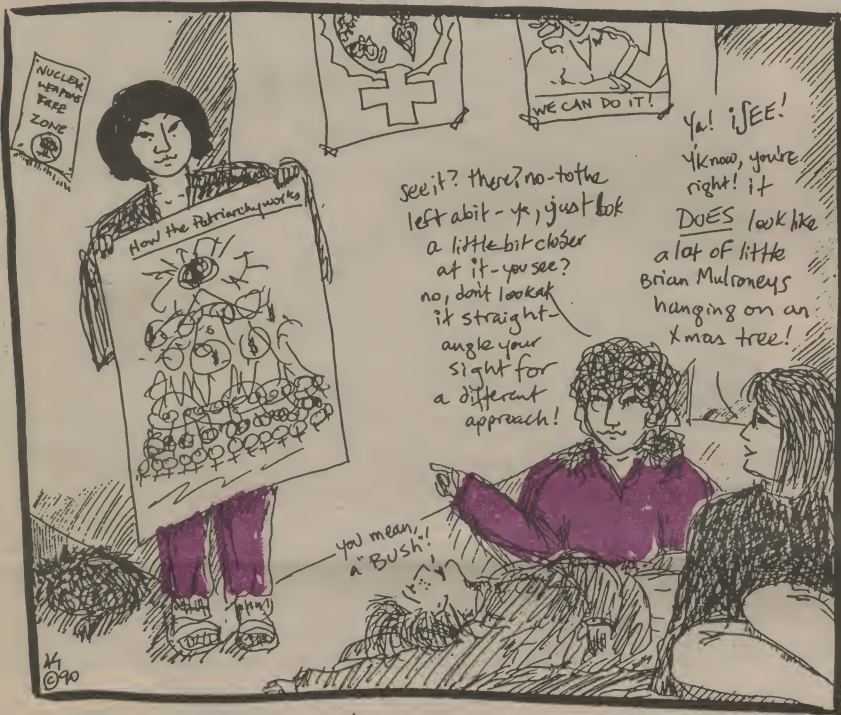 NUCLEAR
WEAPONS
FREE
ZONE
WE CAN DO IT!
How the Patriarchy works
see it? there? no-to the
left abit - ya, just look
a little bit closer
at it - you see?
no, don't look at
it straight-
angle your
sight for
a different
approach!
Ya! iSEE!
Y'know, you're
right! it
DOES look like
a lot of little
Brian Mulroneys
hanging on an
Xmas tree!
you mean,
a "BUSH"!
©90